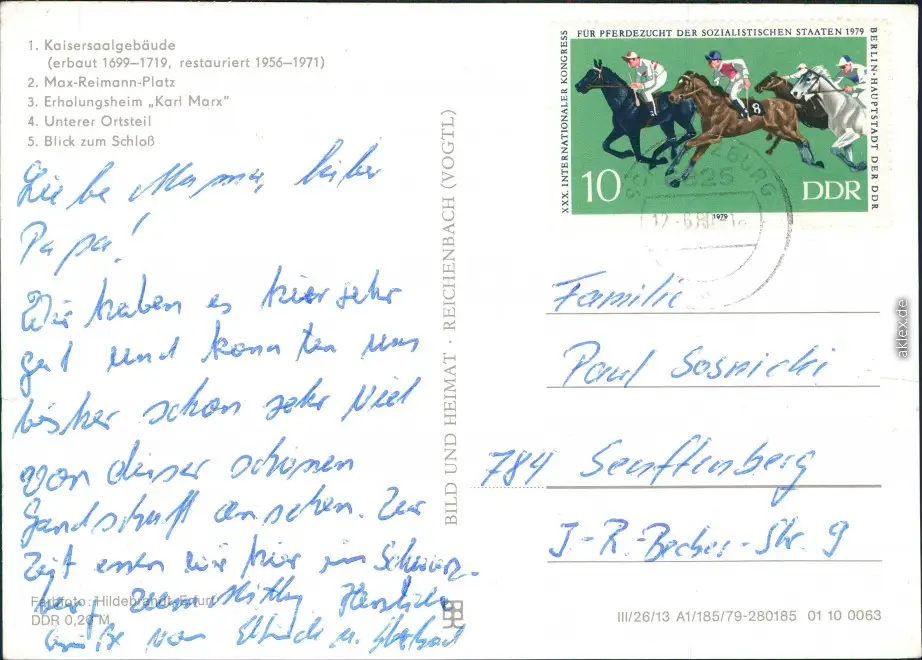 1. Kaisersaalgebäude
(erbaut 1699–1719, restauriert 1956–1971)
2. Max-Reimann-Platz
3. Erholungsheim „Karl Marx"
4. Unterer Ortsteil
5. Blick zum Schloß
Liebe Mama, lieber
Papa!
Wir haben es hier sehr
gut und konnten uns
bisher schon sehr viel
von dieser schönen
Landschaft ansehen. Zur
Zeit essen wir hier im Schwarz-
burg zum Mittag Herzliche
Grüße von u.
Farbfoto: Hildebrandt, Erfurt
DDR 0,20 M
BILD UND HEIMAT · REICHENBACH (VOGTL)
XXX. INTERNATIONALER KONGRESS
FÜR PFERDEZUCHT DER SOZIALISTISCHEN STAATEN 1979
BERLIN-HAUPTSTADT DER DDR
8
10
DDR
1979
Familie
Paul Sosnicki
784 Senftenberg
J.-R.-Becher-Str. 9
III/26/13 A1/185/79-280185 01 10 0063
aklex.de